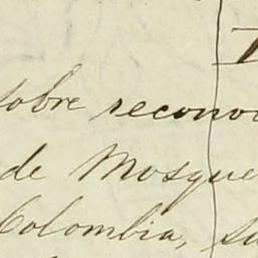 sobre recono
de Mosque
Colombia, su